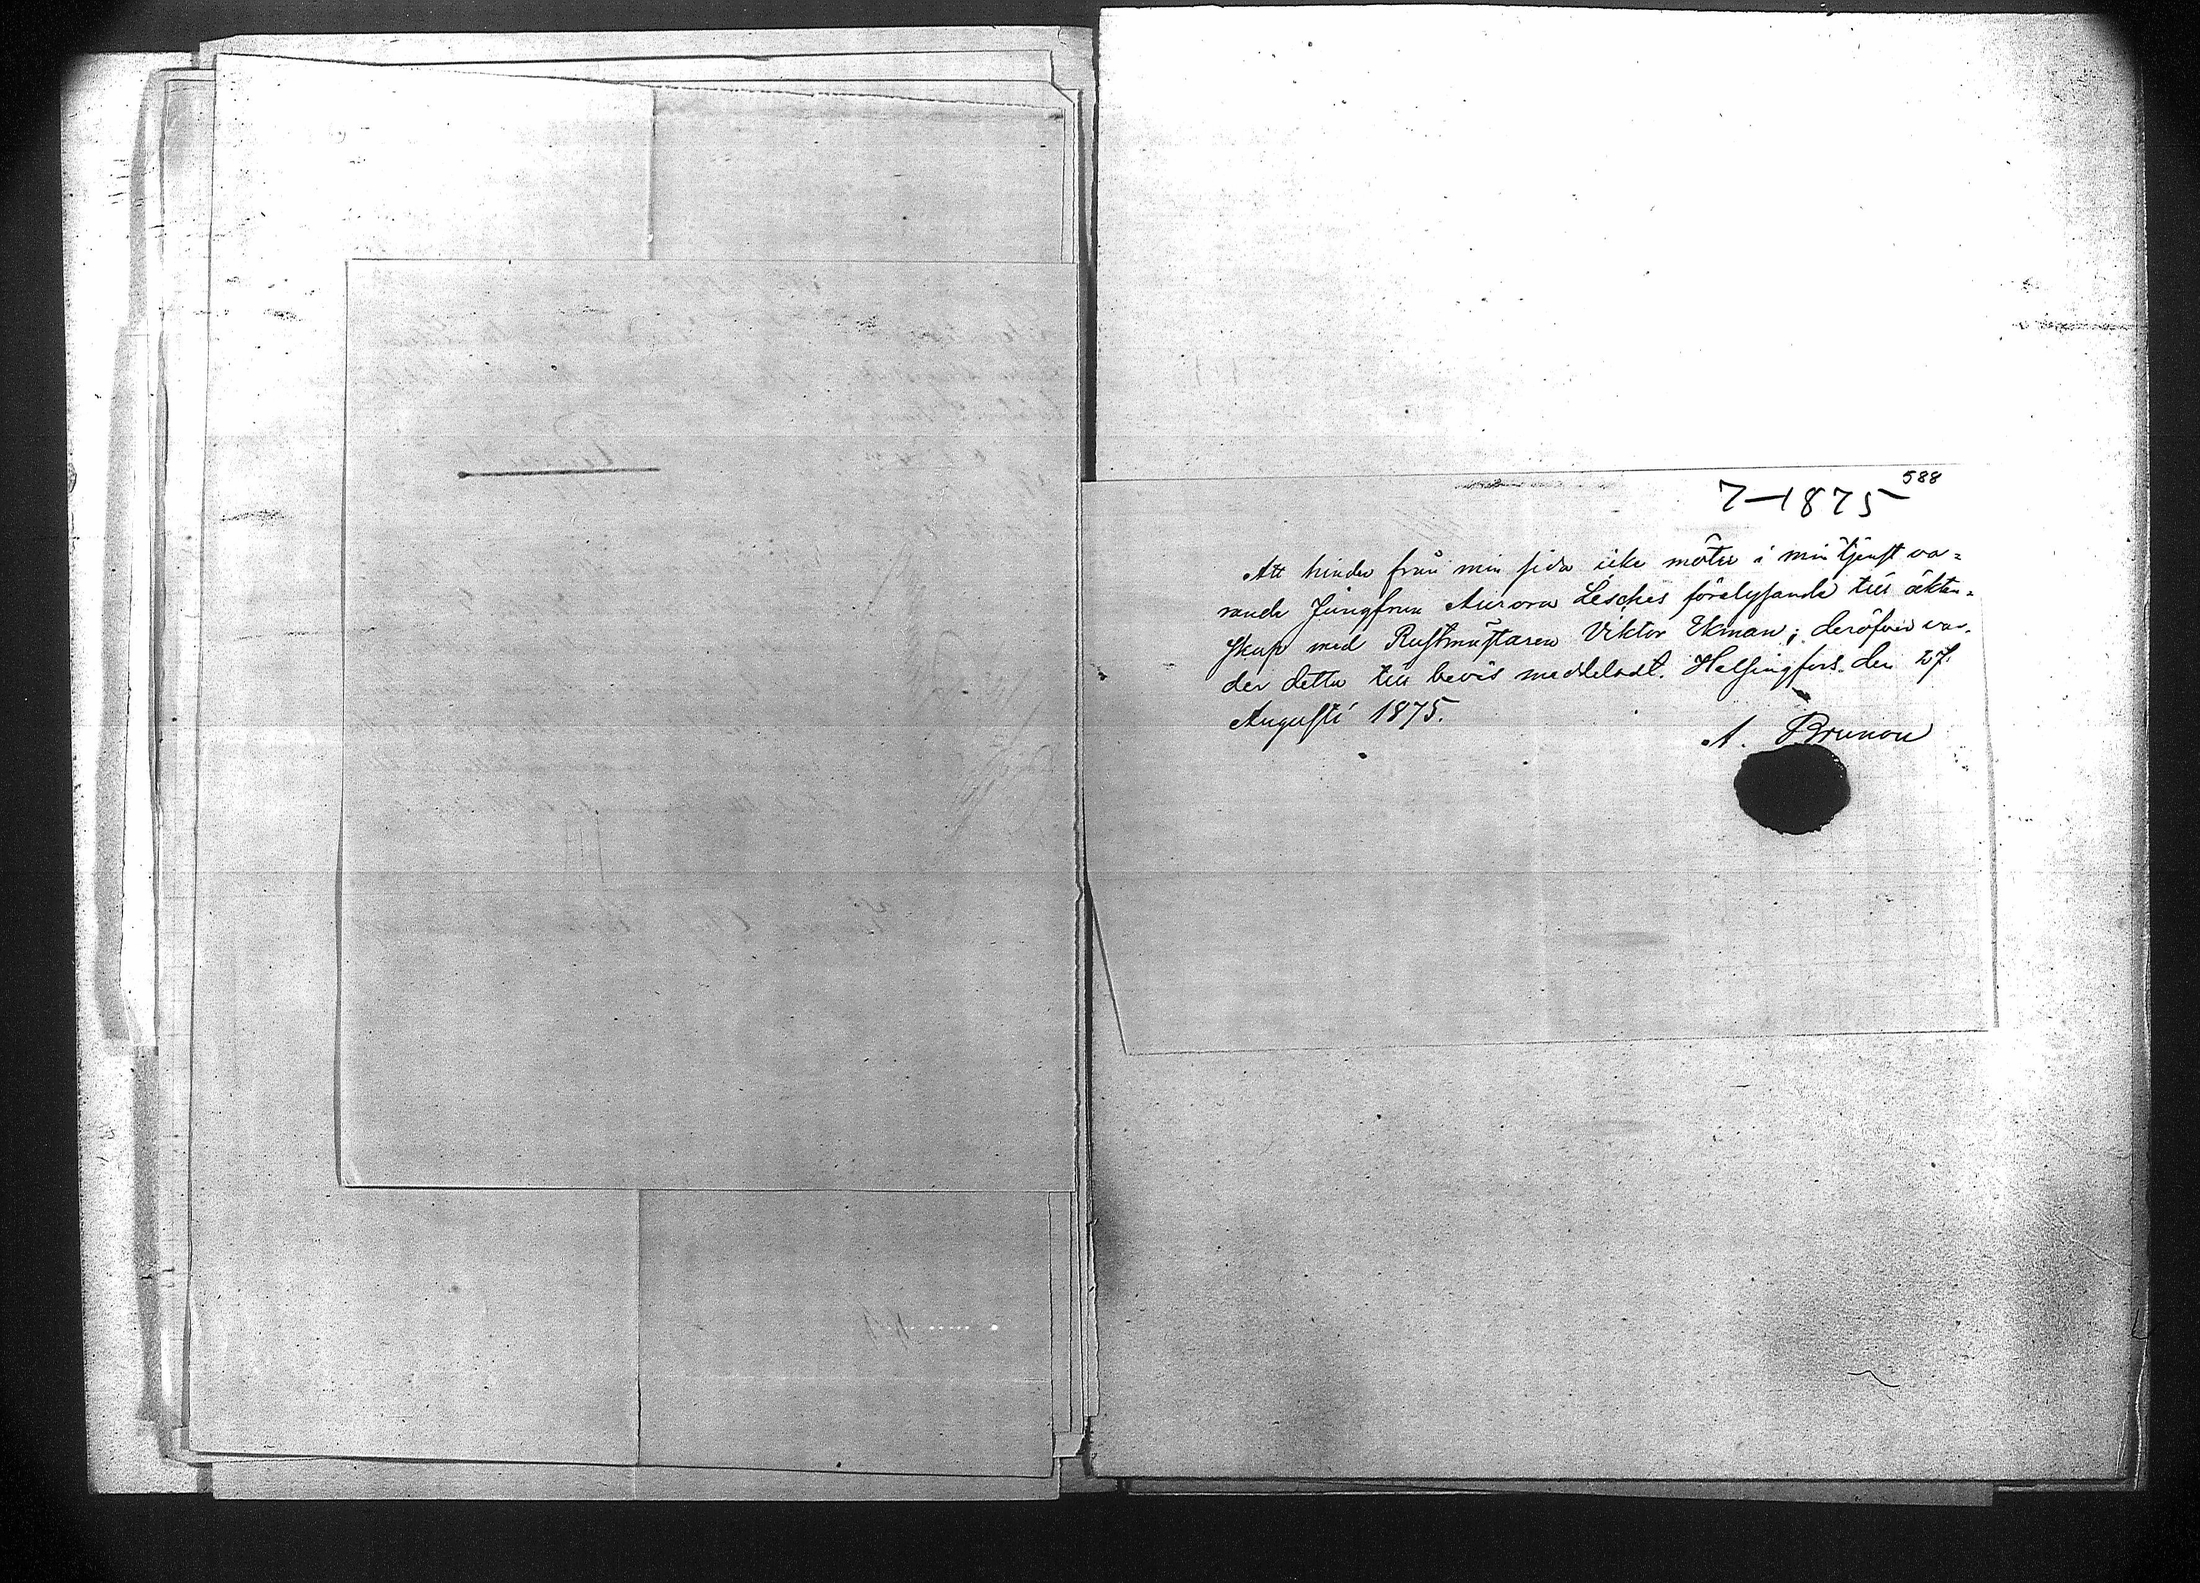 588
7-1875
Att hinder från min sida icke möter i min tjenst va=
rande Jungfrun Aurora Leschés förelysande till äkten=
skap med Rustmästaren Viktor Ekman; deröfver var-
der detta till bevis meddeladt. Helsingfors den 27.
Augusti 1875.
A. Brunou